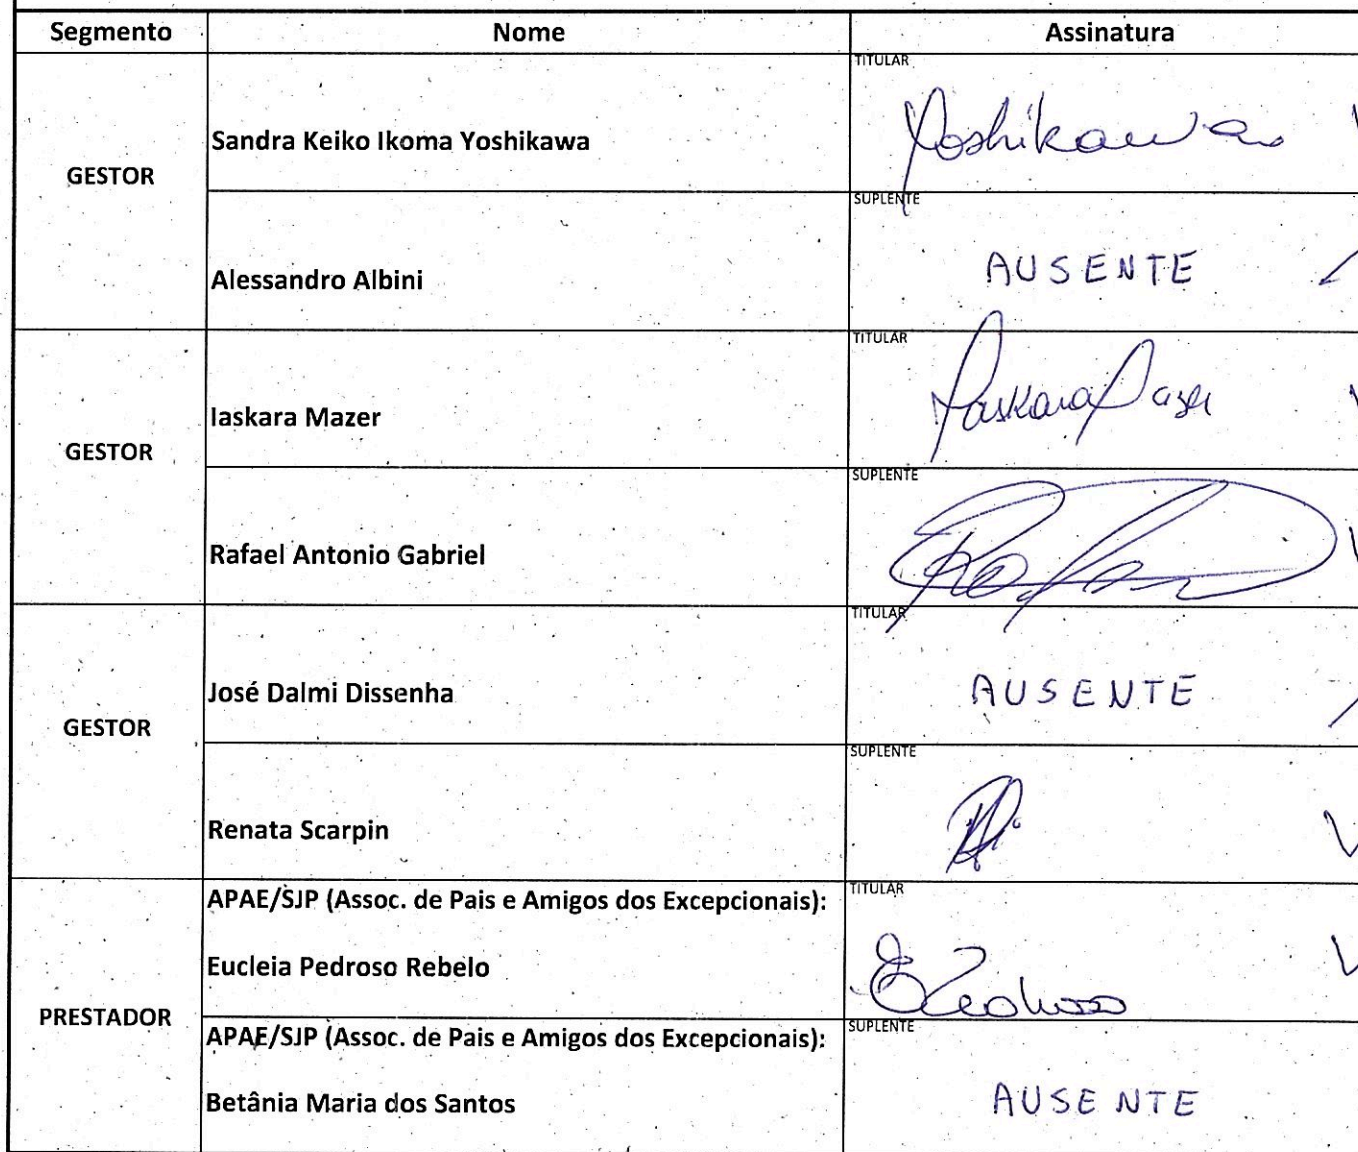 Segmento Nome Assinatura
GESTOR
Sandra Keiko Ikoma Yoshikawa
TITULAR
Yoshikawa
Alessandro Albini
SUPLENTE
AUSENTE
GESTOR
Iaskara Mazer
TITULAR
Iaskara Mazer
Rafael Antonio Gabriel
SUPLENTE
GESTOR
José Dalmi Dissenha
TITULAR
AUSENTE
Renata Scarpin
SUPLENTE
PRESTADOR
APAE/SJP (Assoc. de Pais e Amigos dos Excepcionais):
Eucleia Pedroso Rebelo
TITULAR
APAE/SJP (Assoc. de Pais e Amigos dos Excepcionais):
Betânia Maria dos Santos
SUPLENTE
AUSENTE